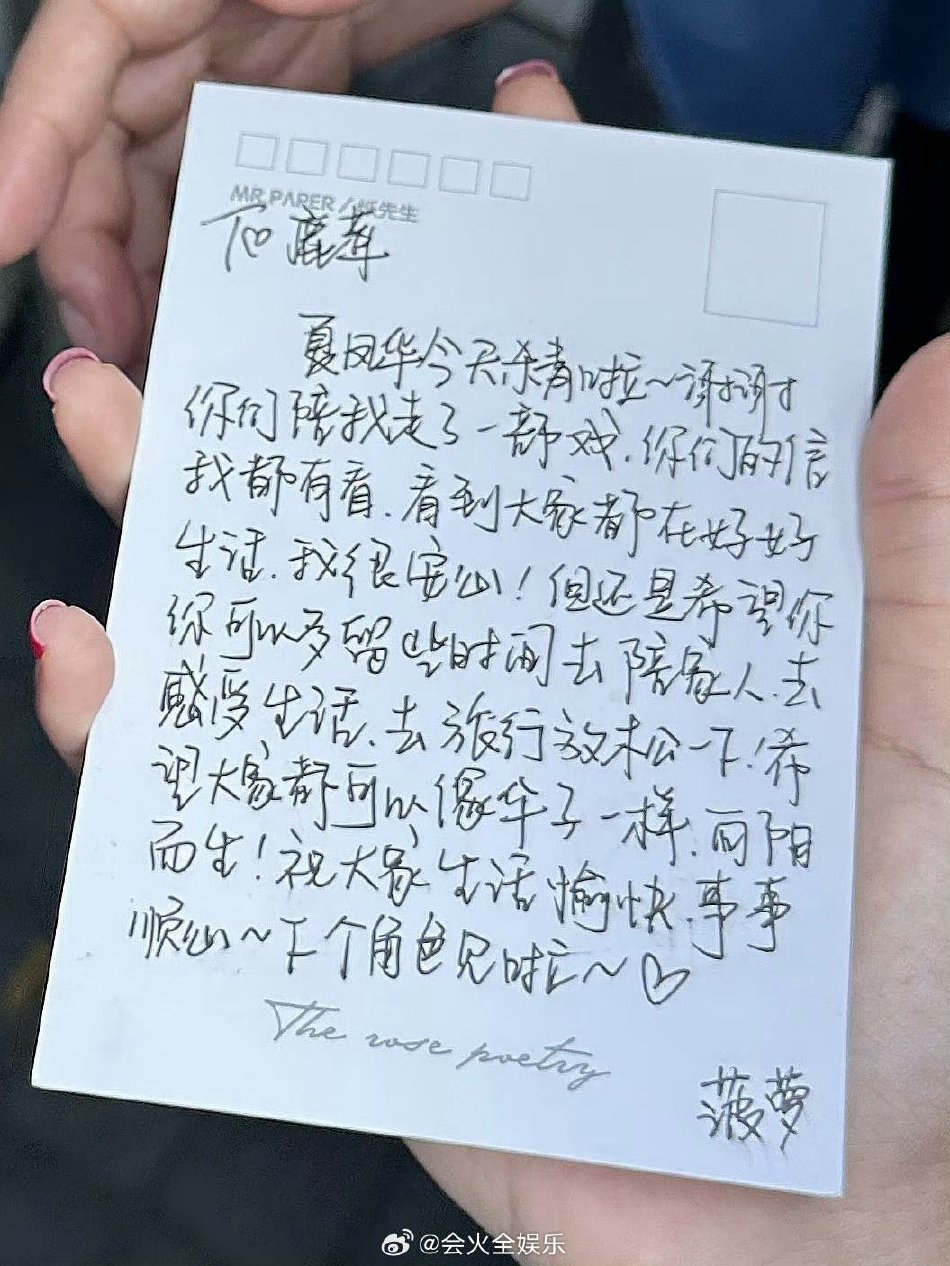 MR.PAPER / 纸先生
To 鹿茸
夏凤华今天杀青啦~谢谢
你们陪我走了一部戏.你们的信
我都有看.看到大家都在好好
生活.我很安心!但还是希望你
你可以多留些时间去陪家人.去
感受生活.去旅行放松一下.希
望大家都可以像华子一样.向阳
而生!祝大家生活愉快.事事
顺心~下个角色见啦~♡
The rose poetry
菠萝
@会火全娱乐